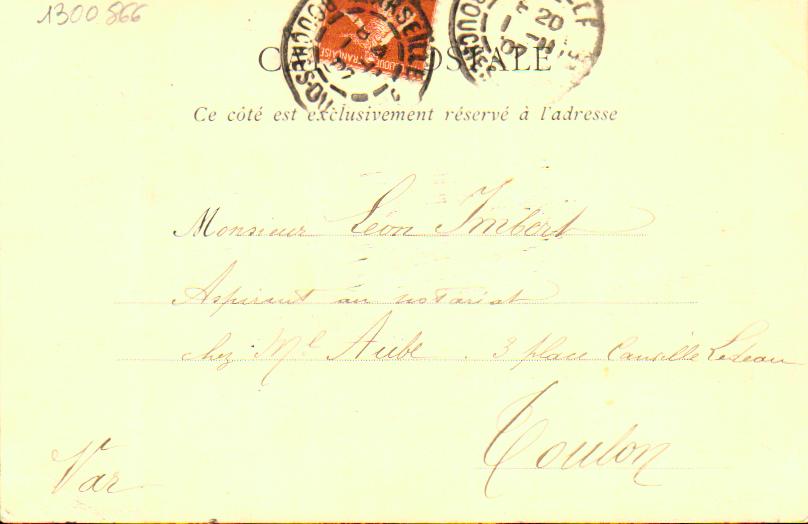 1300866
CARTE POSTALE
Ce côté est exclusivement réservé à l'adresse
Monsieur Léon Imbert
Aspirant au notariat
chez Me Aube. 3 place Camille Ledeau
Toulon
Var